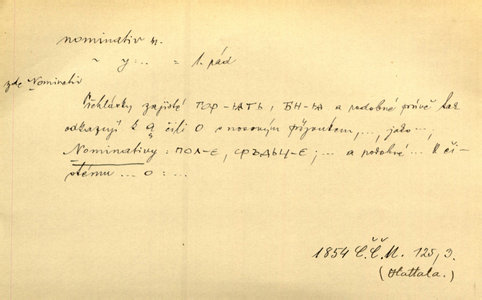 nominativ u.
~ y... = 1. pád
zde Nominativ
Přehlásky zajisté ПѪ-ЬТЬ, БН-Ѩ a podobné právě tak
odkazují k ą čili o s nosovým přízvukem, ..., jako ...,
Nominativy: ПОЛ-Е, СРЪДЬЦ-Е; ... a podobné ... k či-
stému ... o: ...
1854 Č.Č.M. 125, 3.
(Hattala.)